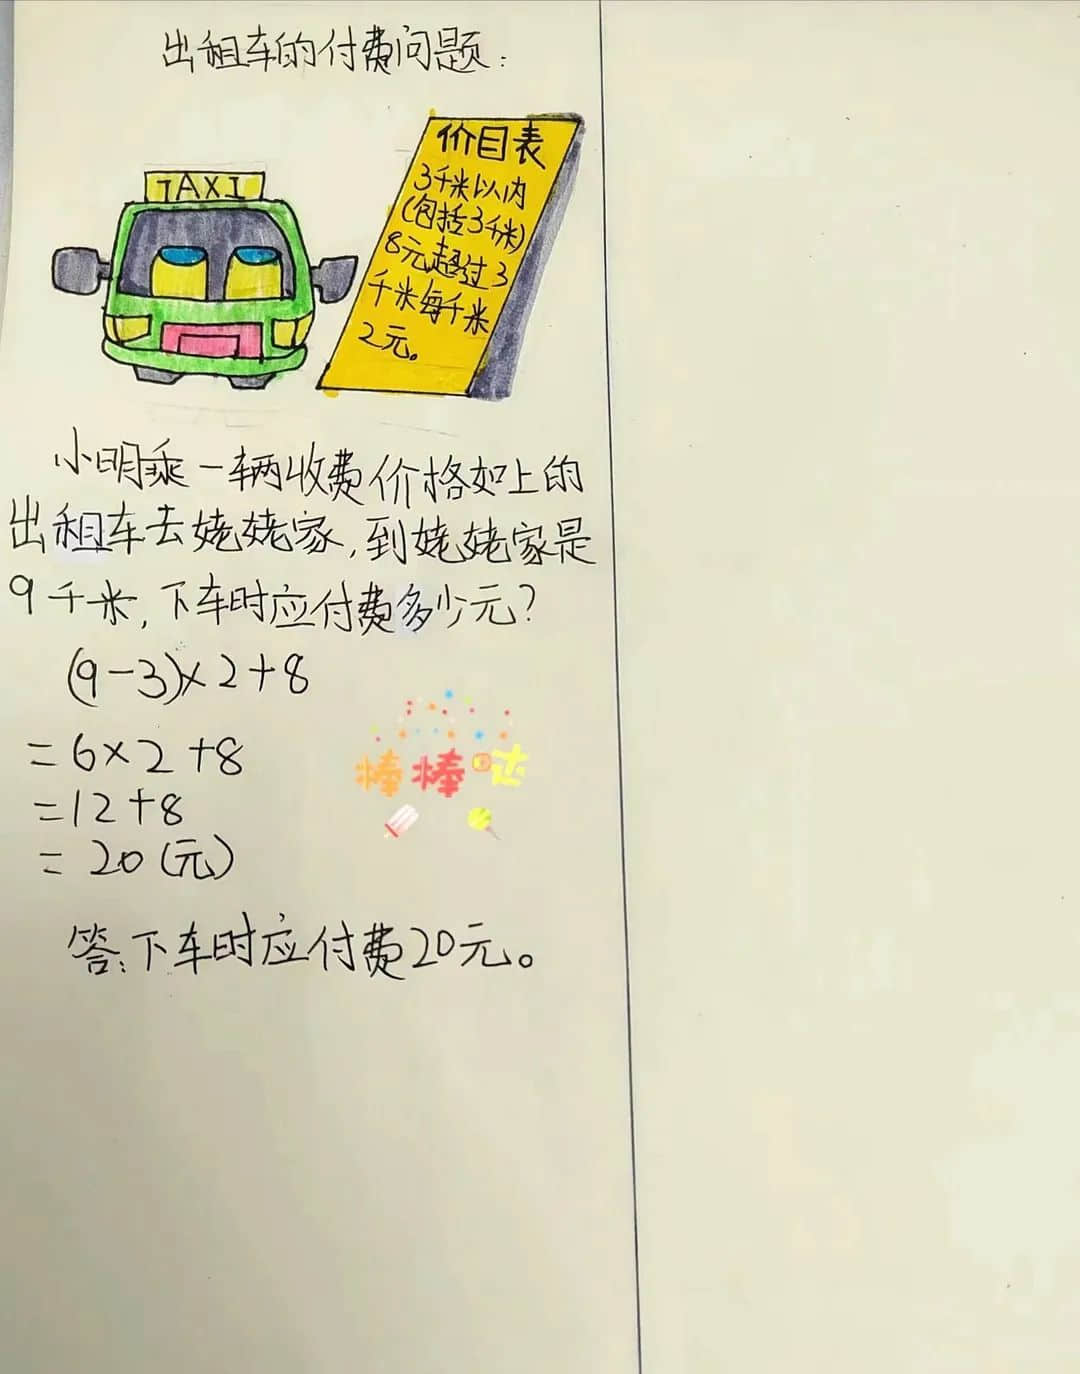 出租车的付费问题:
TAXI
价目表
3千米以内
(包括3千米)
8元超过3
千米每千米
2元。
小明乘一辆收费价格如上的
出租车去姥姥家,到姥姥家是
9千米,下车时应付费多少元?
(9-3)×2+8
=6×2+8
=12+8
=20(元)
棒棒哒
答:下车时应付费20元。